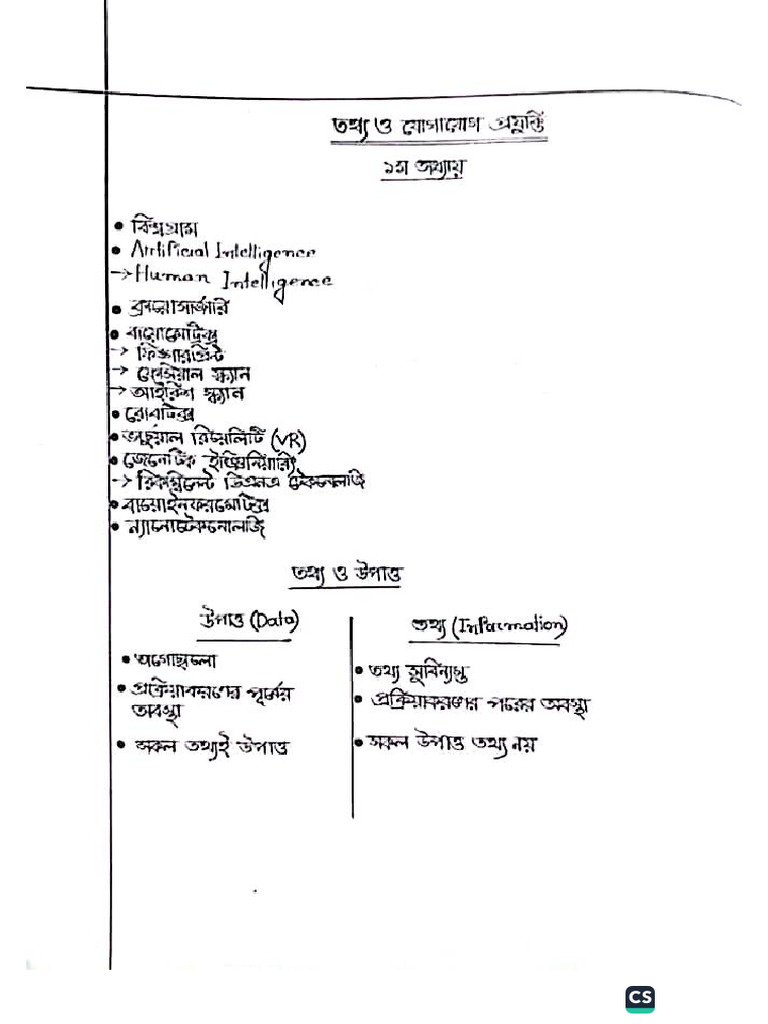 তথ্য ও যোগাযোগ প্রযুক্তি
১ম অধ্যায়
• বিশ্বগ্রাম
• Artificial Intelligence
→ Human Intelligence
• ক্রায়োসার্জারি
• বায়োমেট্রিক্স
→ ফিঙ্গারপ্রিন্ট
→ ফেসিয়াল স্ক্যান
→ আইরিশ স্ক্যান
• রোবটিক্স
• ভার্চুয়াল রিয়েলিটি (VR)
• জেনেটিক ইঞ্জিনিয়ারিং
→ রিকম্বিনেন্ট ডিএনএ টেকনোলজি
• বায়োইনফরমেটিক্স
• ন্যানোটেকনোলজি
তথ্য ও উপাত্ত
উপাত্ত (Data)
• অগোছালো
• প্রক্রিয়াকরণের পূর্বের
অবস্থা
• সকল তথ্যই উপাত্ত
তথ্য (Information)
• তথ্য সুবিন্যস্ত
• প্রক্রিয়াকরণের পরের অবস্থা
• সকল উপাত্ত তথ্য নয়
CS